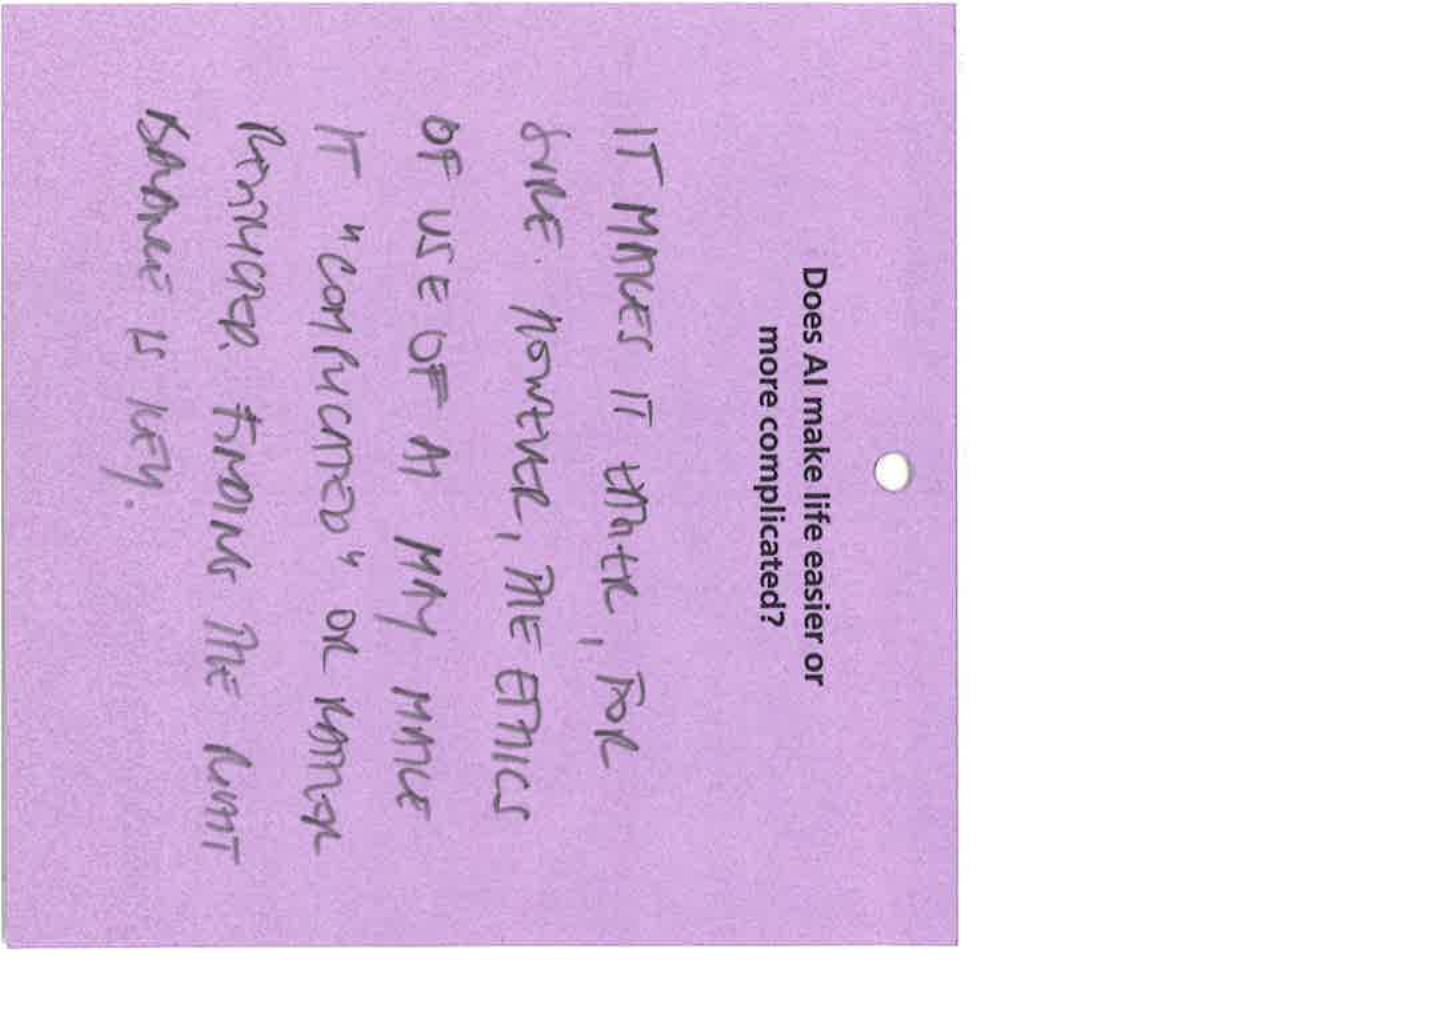 Does AI make life easier or
more complicated?
IT MAKES IT EASIER, FOR
SURE. HOWEVER, THE ETHICS
OF USE OF AI MAY MAKE
IT "COMPLICATED" OR RATHER
FINDING THE RIGHT
BALANCE IS KEY.